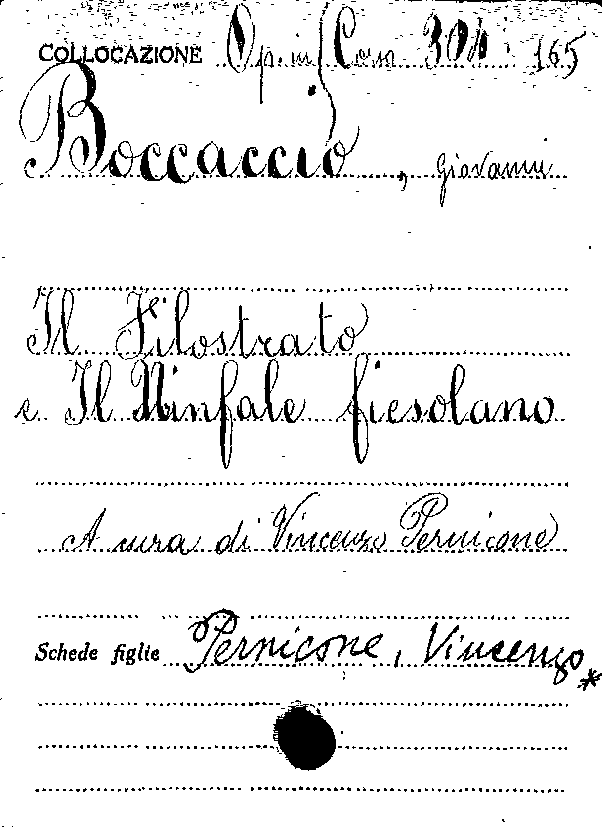 COLLOCAZIONE Op. in Corso 304 165
Boccaccio, Giovanni
Il Filostrato
e Il Ninfale fiesolano
A cura di Vincenzo Pernicone
Schede figlie Pernicone, Vincenzo *